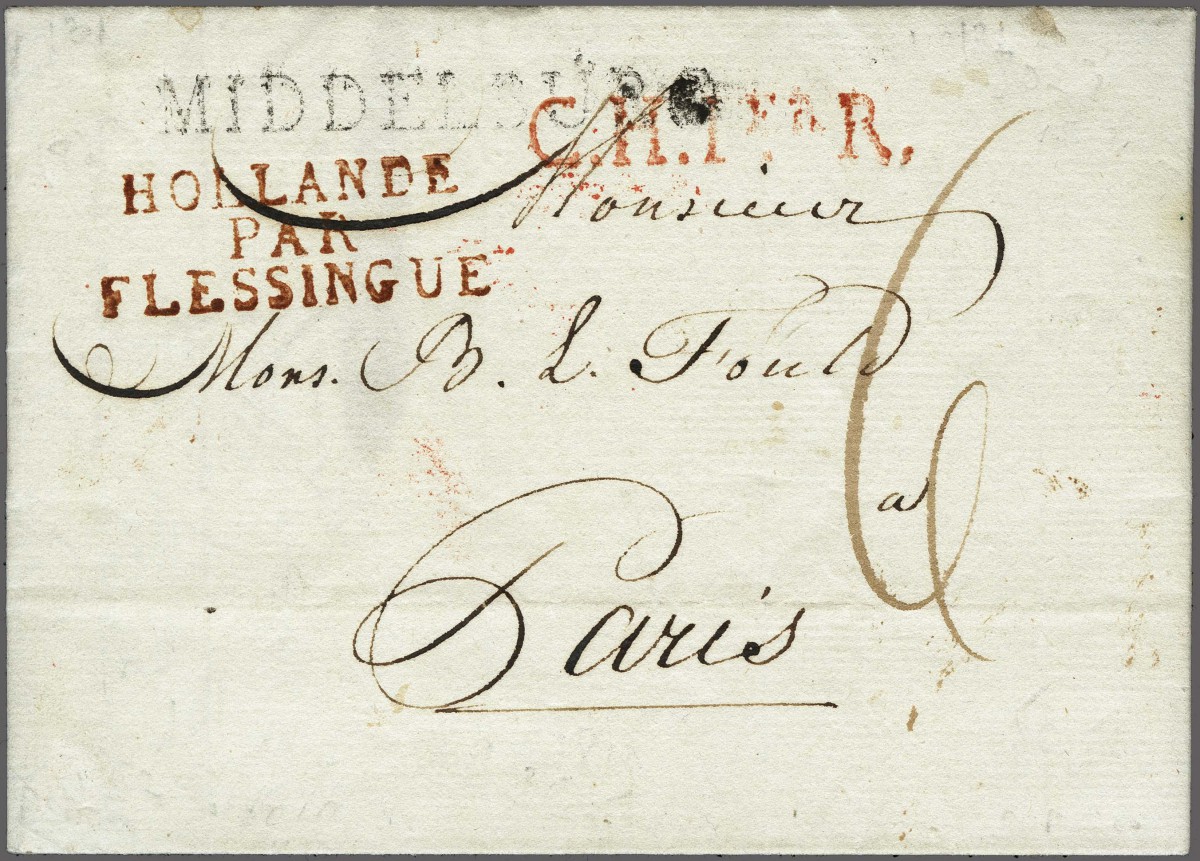 MIDDELBURG
C.H.1ᵉʳ R.
HOLLANDE
PAR
FLESSINGUE
Monsieur
Mons. B. L. Fould
a
Paris